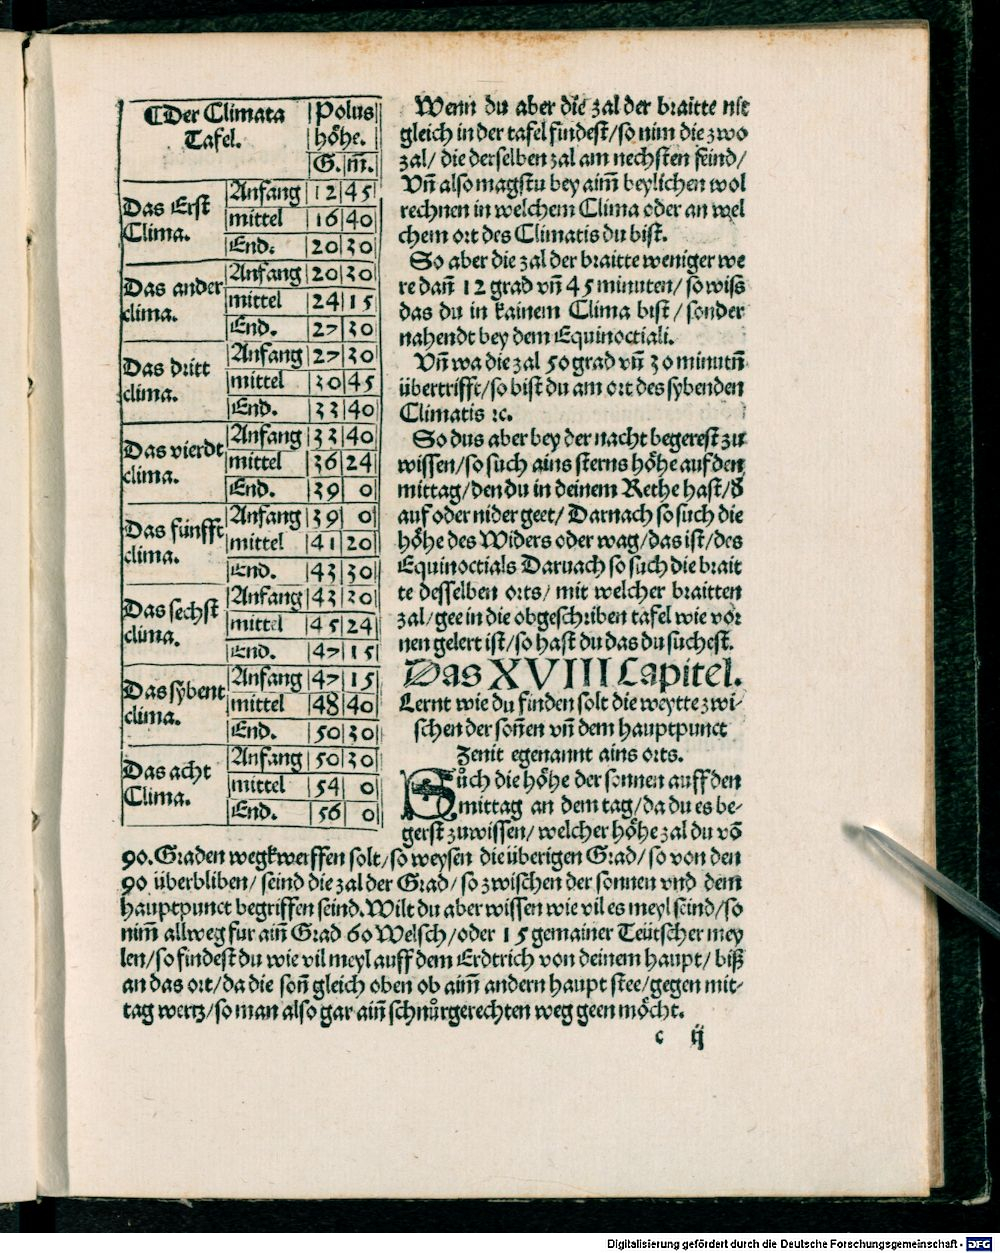 ¶Der Climata Tafel. | Polus höhe.
G. | m̄.
Das Erst Clima. | Anfang | 12 | 45
mittel | 16 | 40
End: | 20 | 30
Das ander clima. | Anfang | 20 | 30
mittel | 24 | 15
End. | 27 | 30
Das dritt clima. | Anfang | 27 | 30
mittel | 30 | 45
End. | 33 | 40
Das vierdt clima. | Anfang | 33 | 40
mittel | 36 | 24
End. | 39 | 0
Das fünfft clima. | Anfang | 39 | 0
mittel | 41 | 20
End. | 43 | 30
Das sechst clima. | Anfang | 43 | 30
mittel | 45 | 24
End. | 47 | 15
Das sybent clima. | Anfang | 47 | 15
mittel | 48 | 40
End. | 50 | 30
Das acht Clima. | Anfang | 50 | 30
mittel | 54 | 0
End. | 56 | 0
Wenn du aber die zal der braitte nit
gleich in der tafel findest/so nim die zwo
zal/ die derselben zal am nechsten seind/
Vñ also magstu bey aim̄ beylichen wol
rechnen in welchem Clima oder an wel
chem ort des Climatis du bist.
So aber die zal der braitte weniger we
re dañ 12 grad vñ 45 minuten/ so wiss
das du in kainem Clima bist / sonder
nahendt bey dem Equinoctiali.
Vñ wa die zal 50 grad vñ 30 minutñ
übertrifft/so bist du am ort des sybenden
Climatis ⁊c.
So dus aber bey der nacht begerest zu
wissen/so such ains sterns höhe auf den
mittag/den du in deinem Rethe hast/d̕
auf oder nider geet/ Darnach so such die
höhe des Widers oder wag/das ist/des
Equinoctials Daruach so such die brait
te desselben orts/ mit welcher braitten
zal/gee in die obgeschriben tafel wie vor
nen gelert ist/so hast du das du suchest.
Das XVIII Capitel.
Lernt wie du finden solt die weytte zwi-
schen der soñen vñ dem hauptpunct
Zenit egenannt ains orts.
Sůch die höhe der sonnen auff den
mittag an dem tag/da du es be-
gerst zuwissen/ welcher höhe zal du võ
90. Graden wegkwerffen solt/so weysen die überigen Grad/so von den
90 überbliben/ seind die zal der Grad/so zwischen der sonnen vnd dem
hauptpunct begriffen seind. Wilt du aber wissen wie vil es meyl seind/so
nim̄ allweg fur aiñ Grad 60 Welsch/oder 15 gemainer Teütscher mey
len/so findest du wie vil meyl auff dem Erdtrich von deinem haupt/ biß
an das ort/da die soñ gleich oben ob aim̄ andern haupt stee/gegen mit-
tag wertz/so man also gar aiñ schnůrgerechten weg geen möcht.
c ij
Digitalisierung gefördert durch die Deutsche Forschungsgemeinschaft - DFG